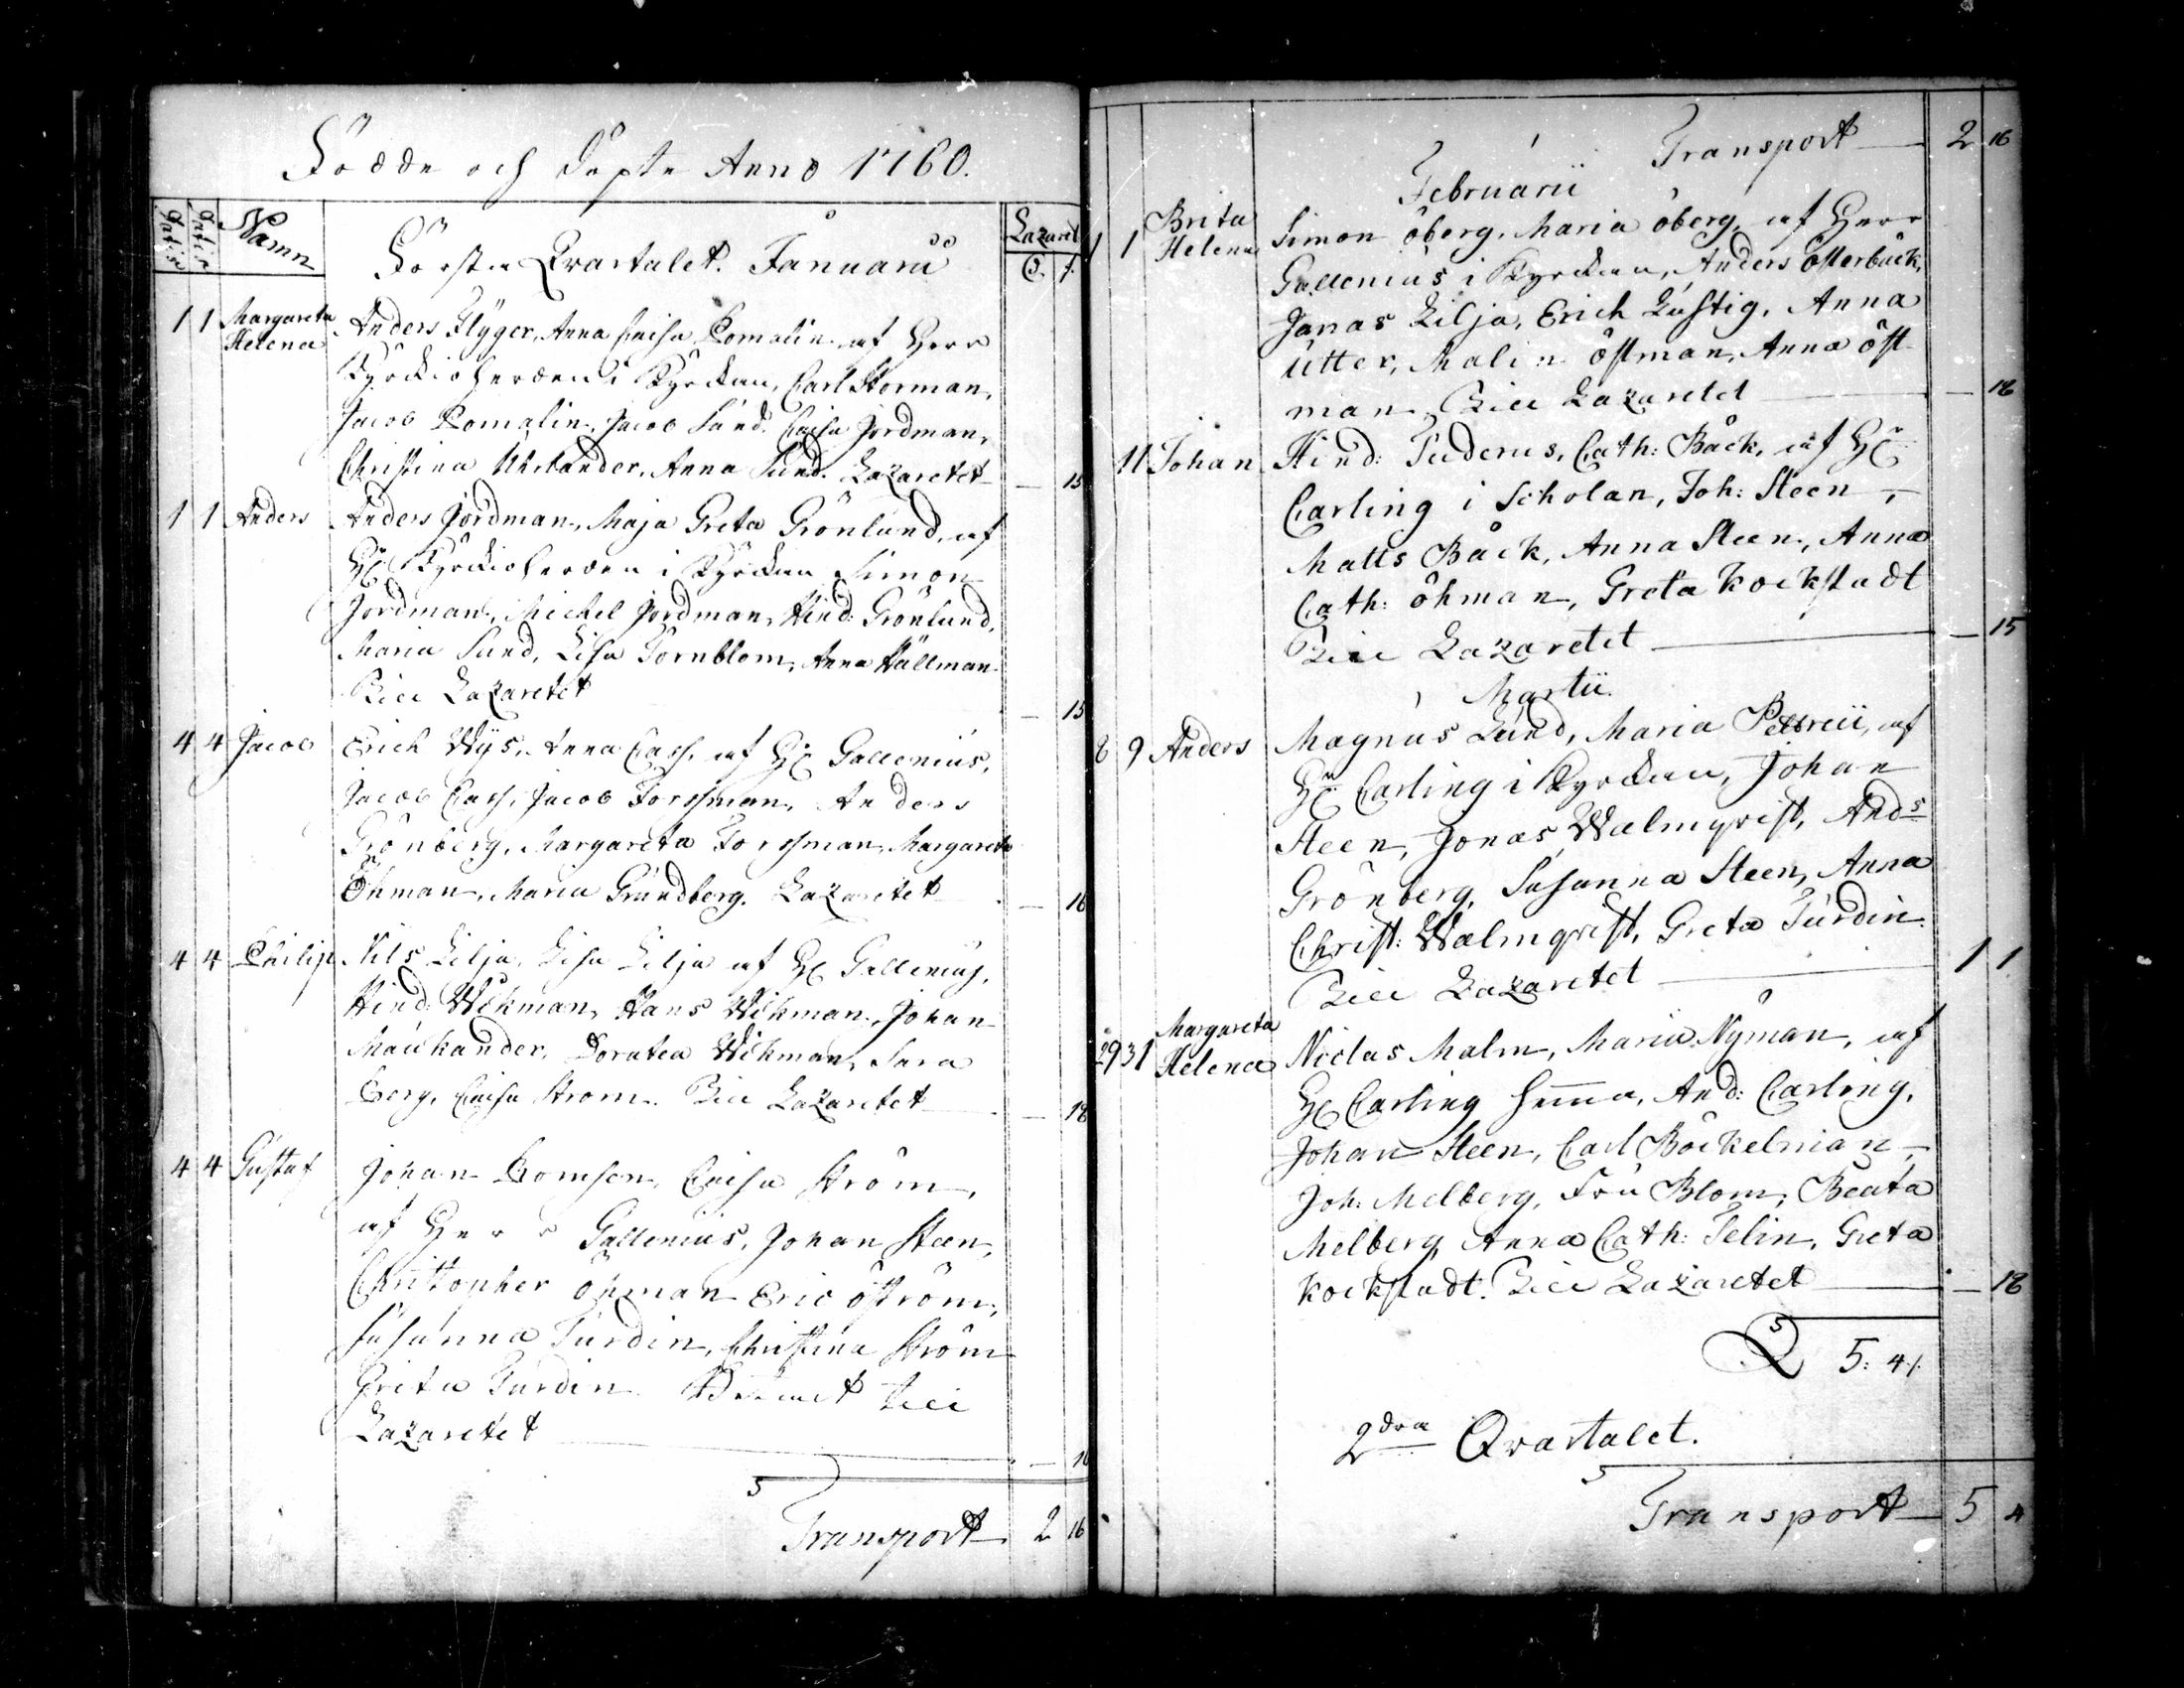 Födde och Döpte Anno 1760.
Namn
Lazaret
Första Qvartalet. Januarii
1 1 Margareta Helena Anders Flyger, Anna Caisa Domalin af Herr
Kyrckioherden i Kyrckan, Carl Storman,
Jacob Domalin, Jacob Sund, Caisa Jordman,
Christina Uhrlander, Anna Sund. Lazaretet — 15
1 1 Anders Anders Jordman, Maja Greta Grönlund, af
H Kyrckioherden i Kyrckan Simon
Jordman, Michel Jordman, Hind: Grönlund,
Maria Sund, Lisa Törnblom, Anna Hällman
Till Lazaretet — 15
4 4 Jacob Erich Wijs, Anna Cash, af H Gallenius,
Jacob Cash, Jacob Forssman, Anders
Grönberg, Margareta Forssman, Margareta
Öhman, Maria Grundberg. Lazaretet — 16
4 4 Philip Nils Lilja, Lisa Lilja af H Gallenius,
Hind: Wikman, Hans Wikman, Johan
Maukander, Doratea Wikman, Sara
Berg, Caisa Strom. Till Lazaretet — 18
4 4 Gustaf Johan Bomson, Caisa Ström,
af Herr Gallenius, Johan Steen,
Christopher Öhman Eric Öström,
Susanna Turdin, Christina Ström
Greta Turdin till
Lazaretet — 16
Transport 2 16
Transport — 2 16
Februarii
1 1 Brita Helena Simon Öberg, Maria Öberg, af Herr
Gallenius i Kyrckan, Anders Österbäck,
Jonas Lilja, Erich Lustig, Anna
Utter, Malin Östman, Anna Öst
man Till Lazaretet — 18
11 Johan Hind: Tuderus, Cath: Bäck, af H
Carling i Scholan, Joh: Steen,
Matts Bäck, Anna Steen, Anna
Cath: Öhman, Greta Kockstadt
Till Lazaretet — 15
Martii.
8 9 Anders Magnus Lund, Maria Petreii, af
H Carling i Kyrckan, Johan
Steen, Jonas Walmqvist, Ands
Grönberg, Susanna Steen, Anna
Christ: Walmqvist, Greta Turdin.
Till Lazaretet — 1 1
29 31 Margareta Helena Niclas Malm, Maria Nyman, af
H Carling hemma, And: Carling,
Johan Steen, Carl Böckelman,
Joh: Melberg, Fru Blom, Beata
Melberg Anna Cath: Telin, Greta
Kockstadt. Till Lazaretet — 18
5: 4/.
2dra Qvartalet.
Transport — 5 4